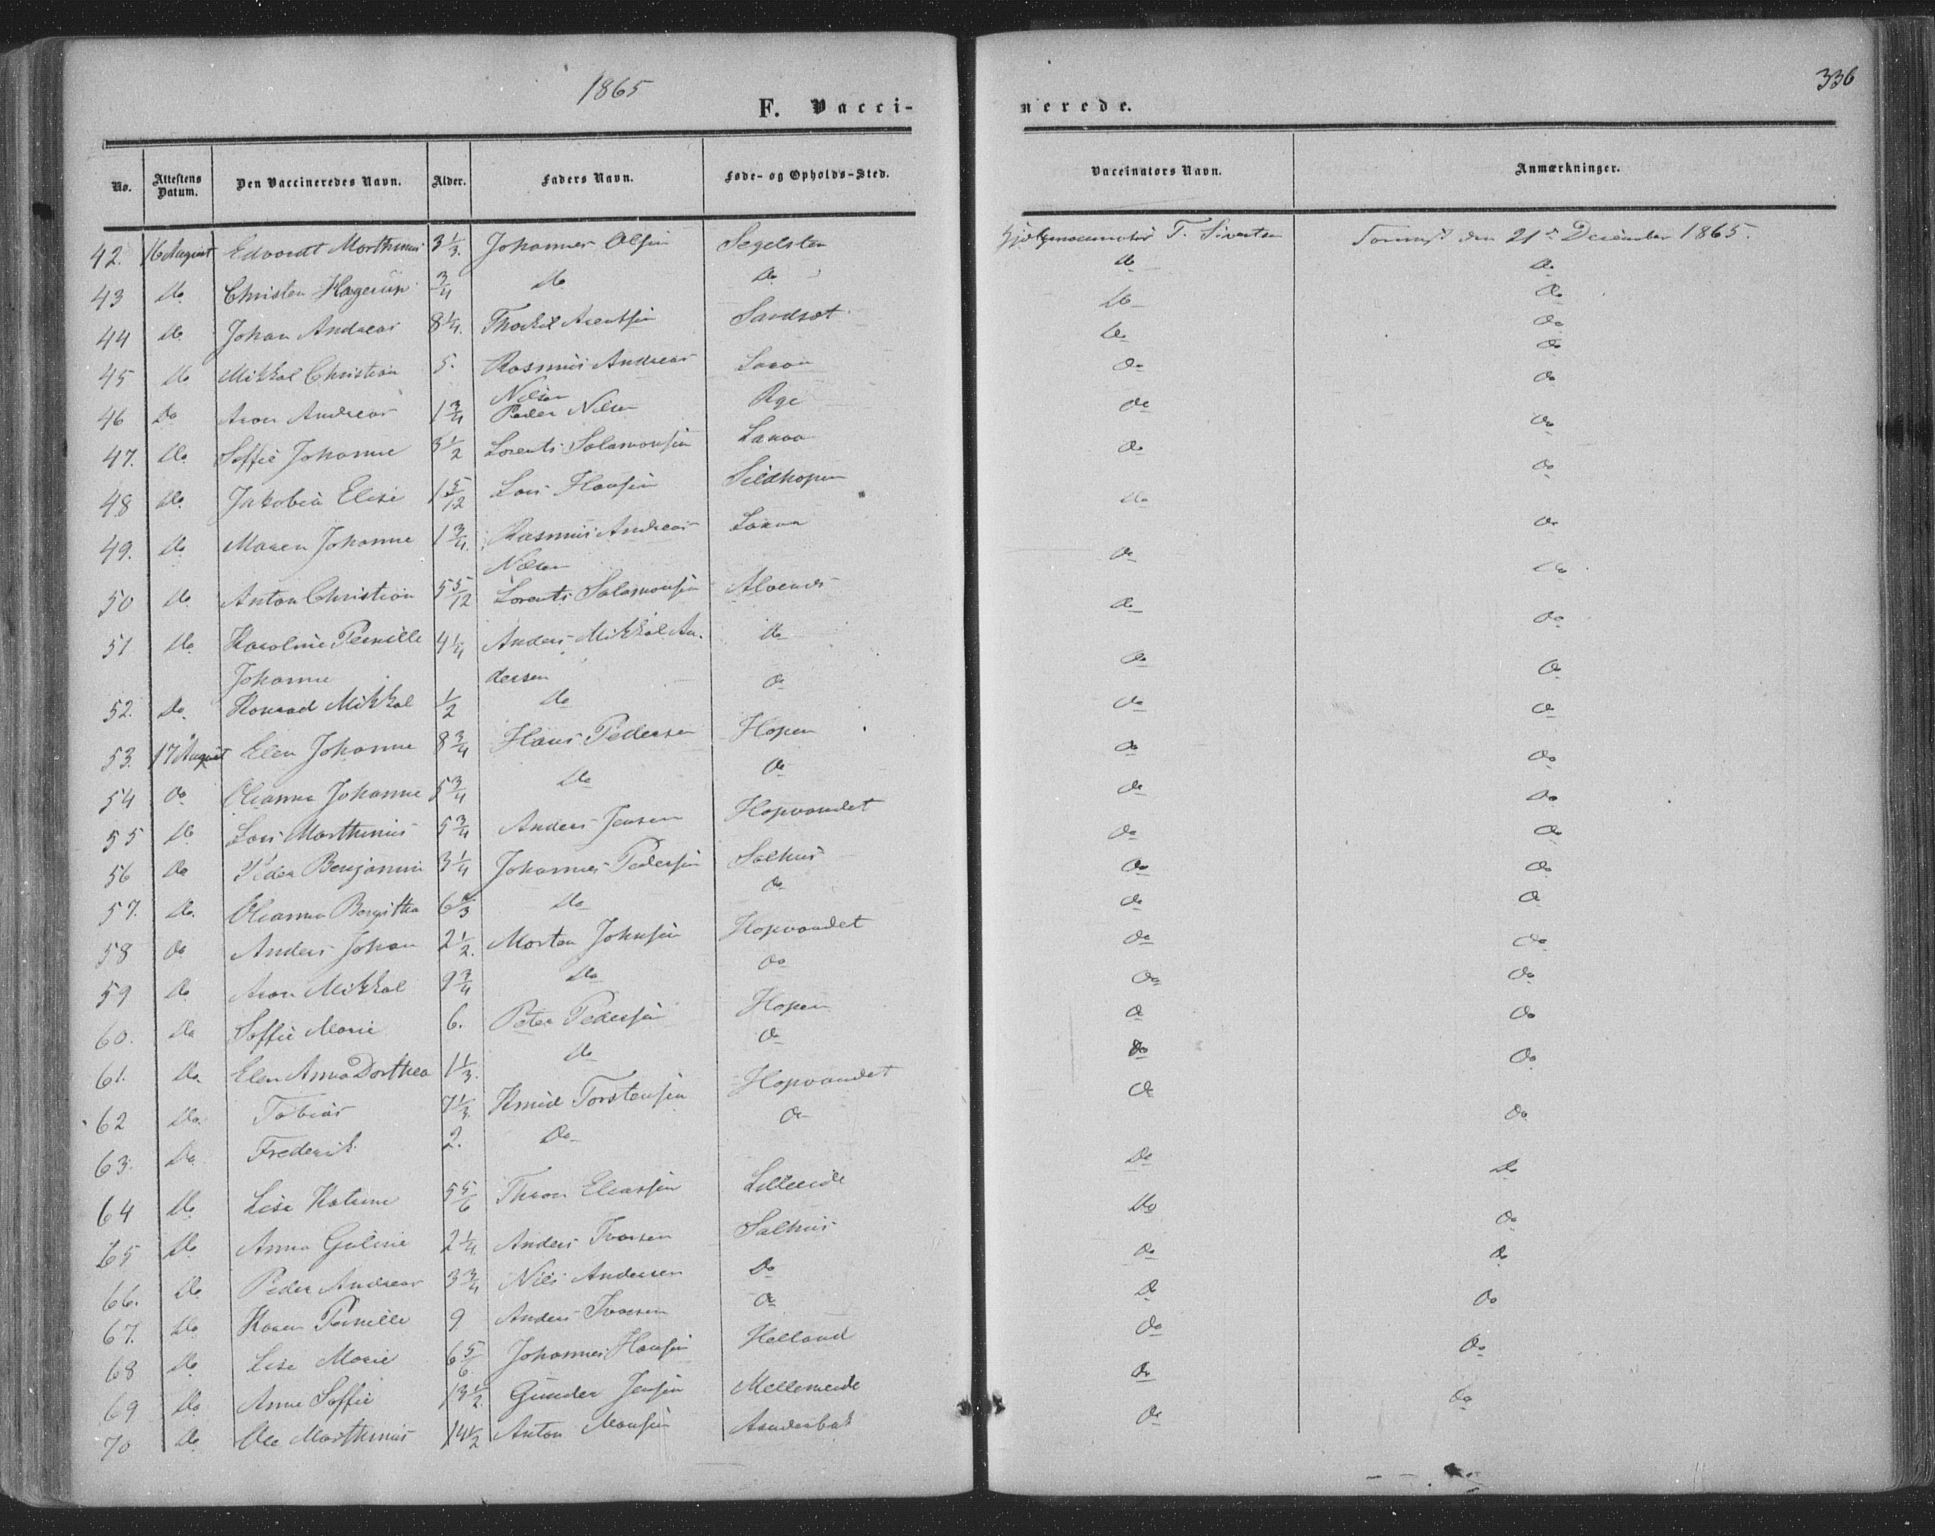 1865
336
F. Vacci-
nerede.
No. Attestens Datum. Den Vaccineredes Navn. Alder. Faders Navn. Føde- og Opholds-Sted. Vaccinators Navn. Anmærkninger.
42. 16 August Edvardt Morthinus 3 1/3. Johannes Olsen Segelsten T. Sivertsen den 21de December 1865.
43 Do Christen Hagerup 3/4 do do do do
44 do Johan Andreas 8 1/4. Thorkel Arentsen Sandsæt do do
45 do Mikkal Christian 5. Rasmus Andreas do do
Nilsen
46 do Aron Andreas 1 3/4 Peder Nilsen do do
47. do Soffie Johanne 3 1/2 Lorents Salamonsen do do
48 do Jakobia Elise 1 5/12 Lars Hansen Sildhopen do do
49. do Maren Johanne 1 3/4. Rasmus Andreas do do
Nilsen
50 do Anton Christian 5 5/12 Lorents Salamonsen Alvenes do do
51 do Karoline Pernille 4 1/4 Anders Mikkal An- do do do
Johanne dersen
52. do Konrad Mikkal 1/2 do do do do
53. 17 August Elen Johanne 8 3/4 Hans Pedersen Hopen do do
54 do Olianna Johanne 5 3/4 do do do do
55 do Lars Morthinus 5 3/4 Anders Jensen Hopvandet do do
56 do Peder Benjamin 3 1/4 Johannes Pedersen Salhus do do
57. do. Olianna Bergitha do do do do
58 do Anders Johan 2 1/2. Morten Johnsen Hopvandet do do
59 do Aron Mikkal 9 3/4 do do do do
60. do Soffie Marie 6. Peter Pedersen Hopen do do
61. do Elen Anna Dorthea 1 1/3. do do do do
62 do Tobias 7 1/3. Knud Torstensen Hopvandet do do
63. do Frederik 2. do do do do
64 do Lise Katrine 5 5/6 Elearsen Lilleeide do do
65 do Anna Guline 2 1/4. Anders Ivarsen Salhus do do
66. do Peder Andreas 3 3/4 Nils Andersen do do do
67. do Karen Pernille 9 Anders Ivarsen do do do
68 do Lise Marie 6 5/6 Johannes Hansen Helland do do
69 do Anne Soffie 13 1/2. Gunder Jensen Mellemeide do do
70 do Ole Morthinus 14 1/2 Anton Monsen do